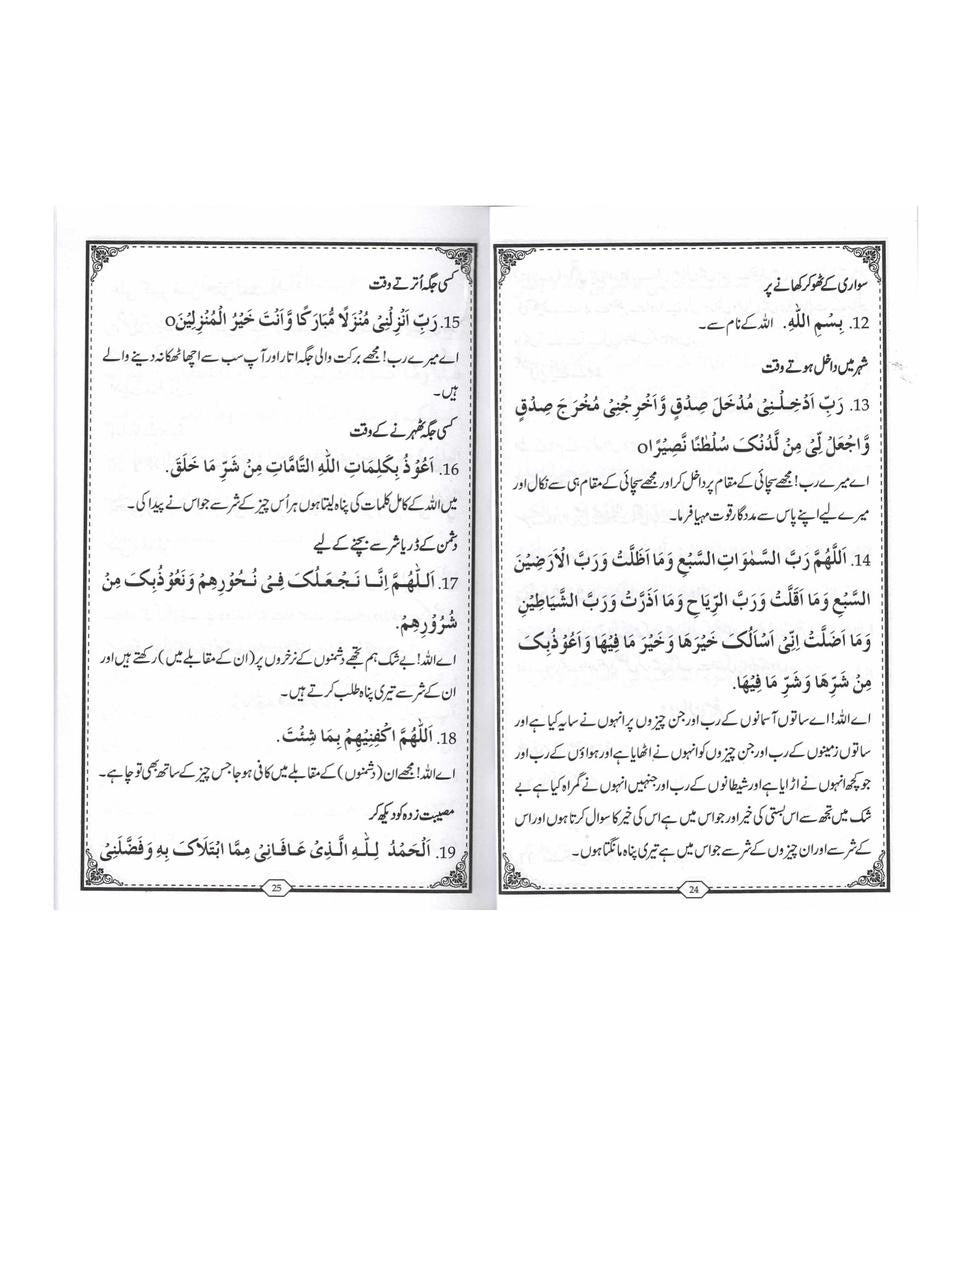 سواری کے ٹھوکر کھانے پر
12. بِسْمِ اللّٰهِ. اللہ کے نام سے۔
شہر میں داخل ہوتے وقت
13. رَبِّ اَدْخِلْنِىْ مُدْخَلَ صِدْقٍ وَّاَخْرِجْنِىْ مُخْرَجَ صِدْقٍ
وَّاجْعَلْ لِّىْ مِنْ لَّدُنْكَ سُلْطٰنًا نَّصِيْرًاo
اے میرے رب! مجھے سچائی کے مقام پر داخل کر اور مجھے سچائی کے مقام ہی سے نکال اور
میرے لیے اپنے پاس سے مددگار قوت مہیا فرما۔
14. اَللّٰهُمَّ رَبَّ السَّمٰوَاتِ السَّبْعِ وَمَا اَظَلَّتْ وَرَبَّ الْاَرَضِيْنَ
السَّبْعِ وَمَا اَقَلَّتْ وَرَبَّ الرِّيَاحِ وَمَا اَذَرَّتْ وَرَبَّ الشَّيَاطِيْنِ
وَمَا اَضَلَّتْ اِنِّىْ اَسْاَلُكَ خَيْرَهَا وَخَيْرَ مَا فِيْهَا وَاَعُوْذُبِكَ
مِنْ شَرِّهَا وَشَرِّ مَا فِيْهَا.
اے اللہ! اے ساتوں آسمانوں کے رب اور جن چیزوں پر انہوں نے سایہ کیا ہے اور
ساتوں زمینوں کے رب اور جن چیزوں کو انہوں نے اٹھایا ہے اور ہواؤں کے رب اور
جو کچھ انہوں نے اڑایا ہے اور شیطانوں کے رب اور جنہیں انہوں نے گمراہ کیا ہے بے
شک میں تجھ سے اس بستی کی خیر اور جو اس میں ہے اس کی خیر کا سوال کرتا ہوں اور اس
کے شر سے اور ان چیزوں کے شر سے جو اس میں ہے تیری پناہ مانگتا ہوں۔
24
کسی جگہ اُترتے وقت
15. رَبِّ اَنْزِلْنِىْ مُنْزَلًا مُّبَارَكًا وَّاَنْتَ خَيْرُ الْمُنْزِلِيْنَo
اے میرے رب! مجھے برکت والی جگہ اتار اور آپ سب سے اچھا ٹھکانہ دینے والے
ہیں۔
کسی جگہ ٹھہرنے کے وقت
16. اَعُوْذُ بِكَلِمَاتِ اللّٰهِ التَّامَّاتِ مِنْ شَرِّ مَا خَلَقَ.
میں اللہ کے کامل کلمات کی پناہ لیتا ہوں ہر اُس چیز کے شر سے جو اس نے پیدا کی۔
دشمن کے ڈر یا شر سے بچنے کے لیے
17. اَللّٰهُمَّ اِنَّا نَجْعَلُكَ فِىْ نُحُوْرِهِمْ وَنَعُوْذُبِكَ مِنْ
شُرُوْرِهِمْ.
اے اللہ! بے شک ہم تجھے دشمنوں کے نرخروں پر (ان کے مقابلے میں) رکھتے ہیں اور
ان کے شر سے تیری پناہ طلب کرتے ہیں۔
18. اَللّٰهُمَّ اكْفِنِيْهِمْ بِمَا شِئْتَ.
اے اللہ! مجھے ان (دشمنوں) کے مقابلے میں کافی ہو جا جس چیز کے ساتھ بھی تو چاہے۔
مصیبت زدہ کو دیکھ کر
19. اَلْحَمْدُ لِلّٰهِ الَّذِىْ عَافَانِىْ مِمَّا ابْتَلَاكَ بِهٖ وَفَضَّلَنِىْ
25